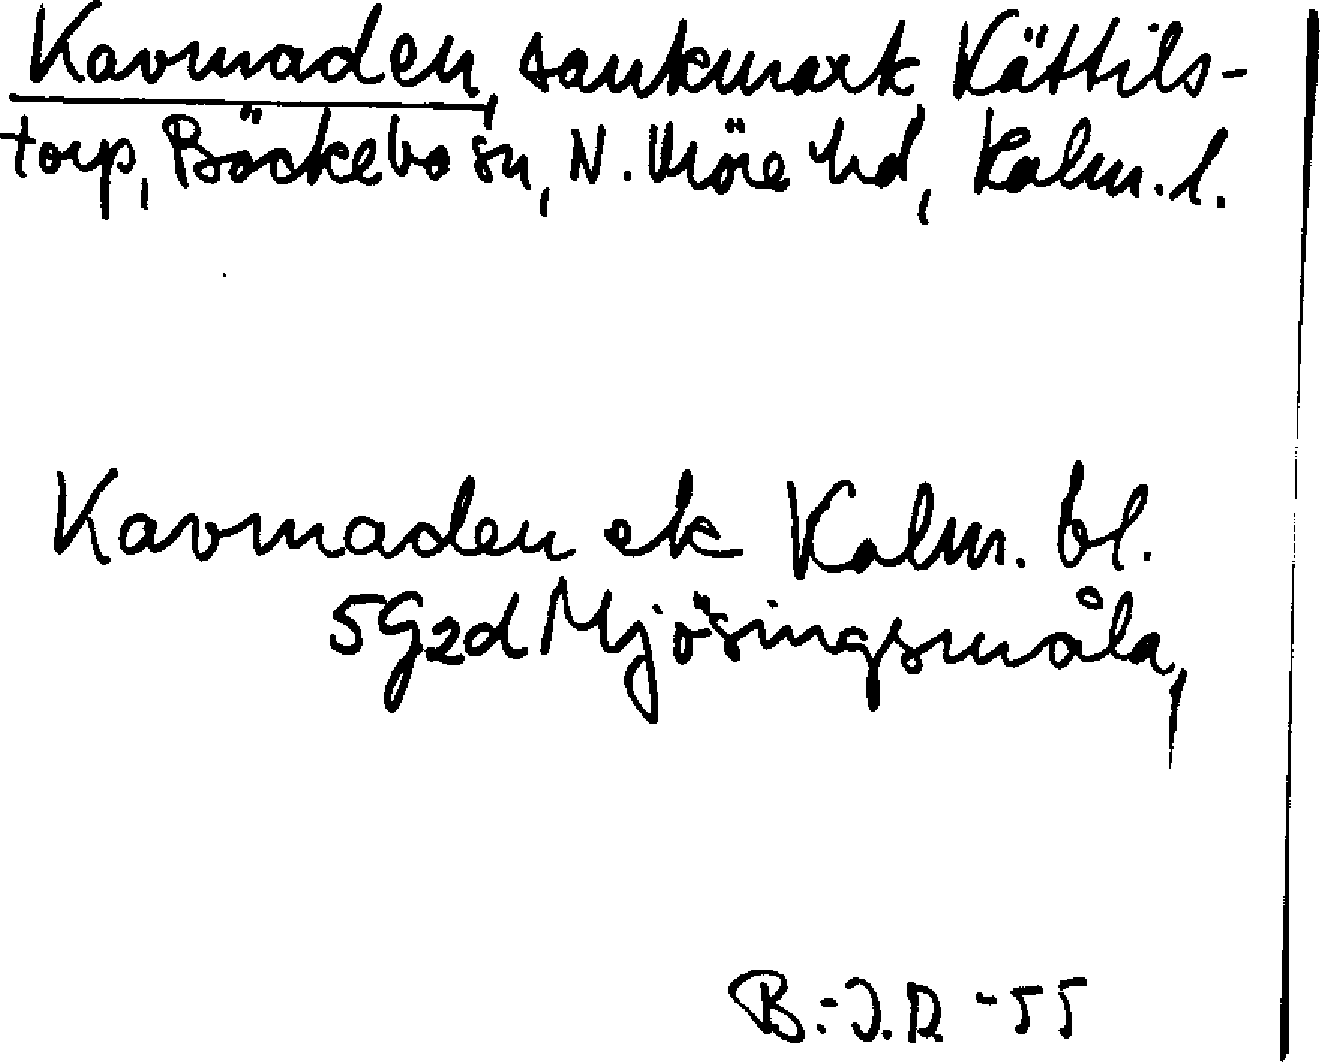 Kavmaden, sankmark, Kättils-
torp, Böckebo sn, N. Möre hd, Kalm. l.
Kavmaden ek Kalm. bl.
5G2d Mjösingsmåla,
B.-J.D. -55